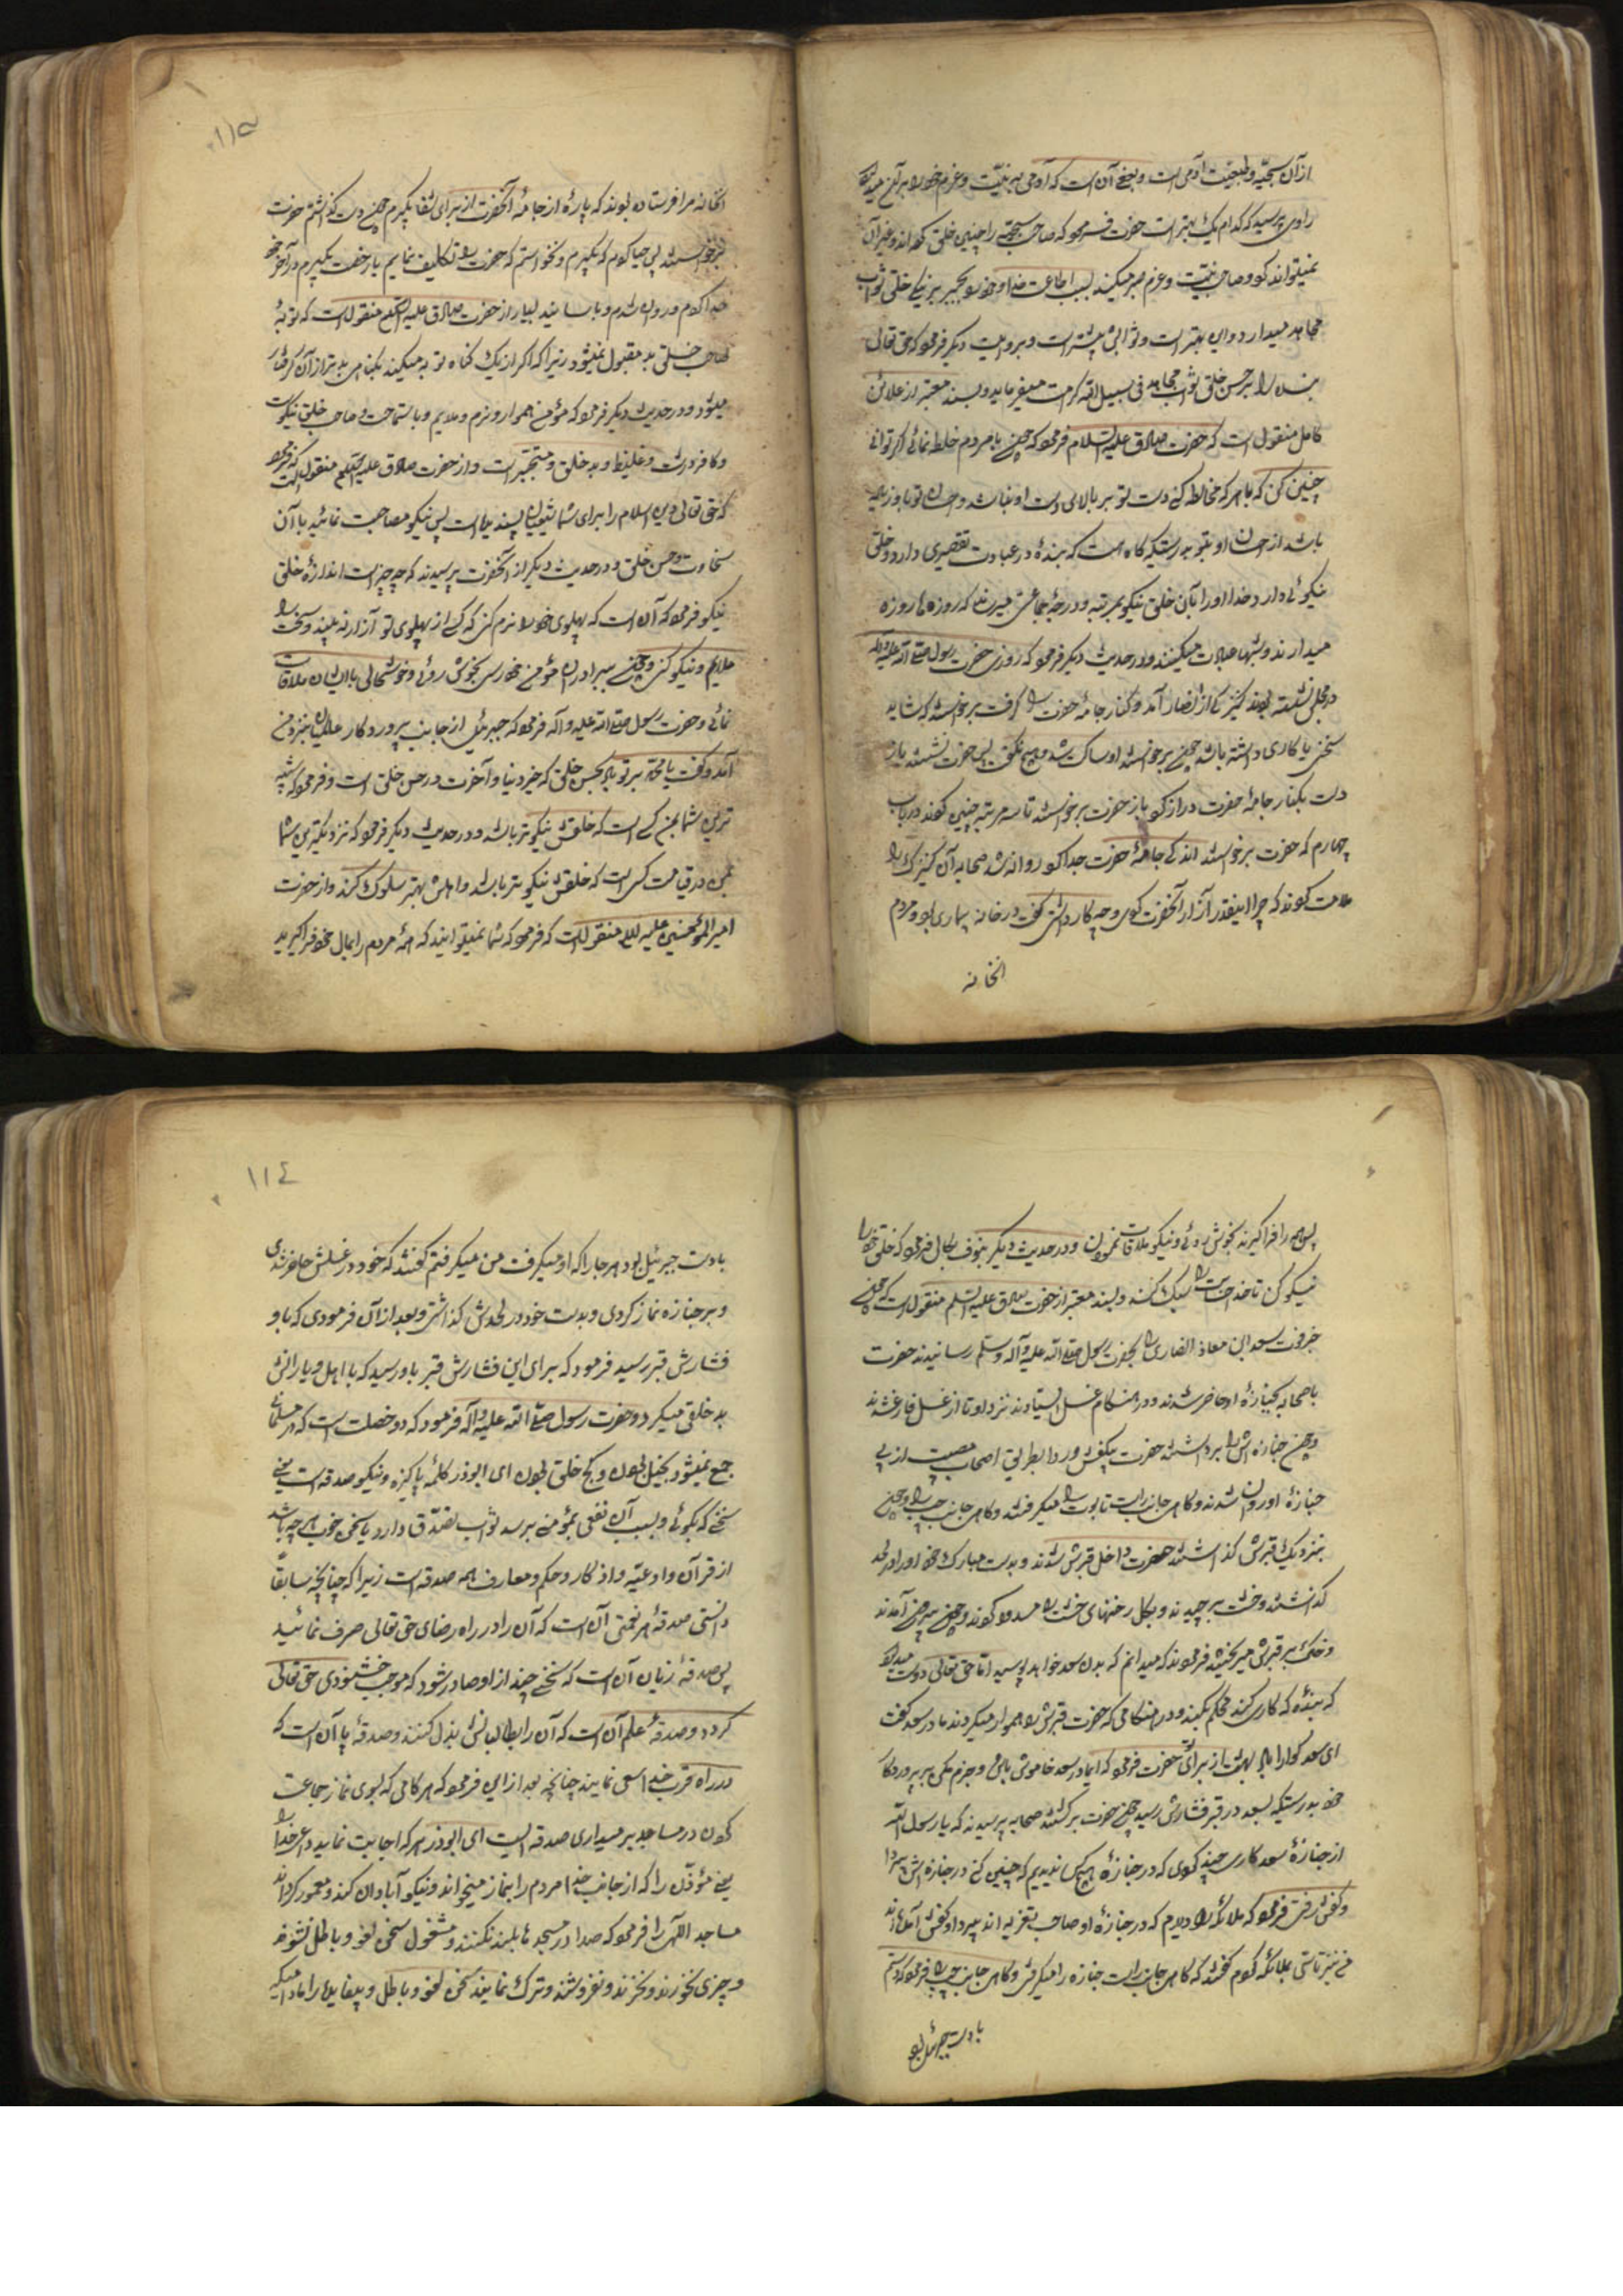 از آن سجیّه و طبیعت آدمی است و بعضی آن است که آدمی به نیّت و عزم خود را بر آن میدارد
راوی پرسید که کدام یک بهتر است حضرت فرمود که صاحب سجیّه را چنین خلق کرده اند و غیر آن
نمیتواند کرد و صاحب نیّت و عزم صبر میکند بسبب اطاعت خدا و خود را بجبر بر نیکی خلق ثواب
مجاهد میدارد و این بهتر است و ثوابش بیشتر است و بروایت دیگر فرمود که حق تعالی
بنده را بر حسن خلق ثواب مجاهد فی سبیل الله کرامت میفرماید و بسند معتبر از علاء بن
کامل منقول است که حضرت صادق علیه السلام فرمود که چون با مردم خلط نمائی اگر توانی
چنین کن که با هر که مخالطه کنی دست تو بر بالای دست او باشد و احسان تو باو زیاده
باشد از احسان او بتو بدرستیکه گاه هست که بنده در عبادت تقصیری دارد و خلق
نیکوئی دارد خدا او را بآن خلق نیکو بمرتبه و درجهٔ جماعتی میرساند که روزها روزه
میدارند و شبها عبادت میکنند و در حدیث دیگر فرمود که روزی حضرت رسول صلی الله علیه وآله
در مجلس نشسته بودند کنیزکی از انصار آمد و کنار جامهٔ حضرت را گرفت برخواستند که شاید
سخنی یا کاری داشته باشد چون برخواستند او ساکت شد و هیچ نگفت پس حضرت نشستند باز
دست بکنار جامهٔ حضرت دراز کرد باز حضرت برخواستند تا سه مرتبه چنین کردند در باب
چهارم که حضرت برخواستند اندکی جامهٔ حضرت جدا کرد و روانه شد صحابه آن کنیزک را
ملامت کردند که چرا اینقدر آزار آنحضرت کردی و چه کار داشتی گفت در خانه بیماری بود مردم
انخانه
انخانه مرا فرستاده بودند که پارهٔ از جامهٔ آنحضرت از برای شفا بگیرم چون دست گذاشتم حضرت
برخواستند پس حیا کردم که بگیرم و نخواستم که حضرت را تکلیف نمایم باز رخصت بگیرم در آخر خود
جدا کردم و روان شدم و باسانید بسیار از حضرت صادق علیه السلام منقول است که توبهٔ
صاحب خلق بد مقبول نمیشود زیرا که اگر از یک گناه توبه میکند بگناهی بدتر از آن گرفتار
میشود و در حدیث دیگر فرمود که مؤمن هموار و نرم و ملایم و با سماحت و صاحب خلق نیکوست
و کافر درشت و غلیظ و بد خلق و متجبّر است و از حضرت صادق علیه السلام منقول است که فرمود
که حق تعالی دین اسلام را برای شما پسندیده است پس نیکو مصاحبت نمائید با آن
سخاوت و حسن خلق و در حدیث دیگر از آنحضرت پرسیدند که چه چیز است اندازهٔ خلق
نیکو فرمود که آن است که پهلوی خود را نرم کنی که کسی از پهلوی تو آزار نه بیند و سخت را
ملایم و نیکو کنی و چون ببرادران مؤمن خود رسی بخوش روئی و خوشحالی با ایشان ملاقات
نمائی و حضرت رسول صلی الله علیه و آله فرمود که جبرئیل از جانب پروردگار عالمیان بنزد من
آمد و گفت یا محمّد بر تو باد بحسن خلق که خیر دنیا و آخرت در حسن خلق است و فرمود که شبیه
ترین شما بمن کسی است که خلقش نیکوتر باشد و در حدیث دیگر فرمود که نزدیکترین شما
بمن در قیامت کسی است که خلقش نیکوتر باشد و با اهلش بهتر سلوک کند و از حضرت
امیرالمؤمنین علیه السلام منقول است که فرمود که شما نمیتوانید که همهٔ مردم را بمال خود فراگیرید
پس همه را فراگیرید بخوش روئی و نیکو ملاقات نمودن و در حدیث دیگر بنوف بکالی فرمود که خلق خود را
نیکو کن تا خدا حسابت را سبک کند و بسند معتبر از حضرت صادق علیه السلام منقول است که چون
خبر فوت سعد ابن معاذ انصاری را بحضرت رسول صلی الله علیه و آله وسلم رسانیدند حضرت
با صحابه بجنازهٔ او حاضر شدند و در هنگام غسل ایستادند نزد او تا از غسل فارغ شدند
و چون جنازه اش را برداشتند حضرت بیکفش و ردا بطریق اصحاب مصیبت از پی
جنازهٔ او روان شدند و گاهی جانب راست تابوت را میگرفتند و گاهی جانب چپ را و چون
بنزدیک قبرش گذاشتند حضرت داخل قبرش شدند و بدست مبارک خود او را در لحد
گذاشتند و خشت بر چیدند و بگل رخنهای خشت را مسدود کردند و چون بیرون آمدند
و خاک بر قبرش میریختند فرمودند که میدانم که بدن سعد خواهد پوسید امّا حق تعالی دوست میدارد
که بنده که کاری کند محکم بکند و در هنگامی که حضرت قبرش را هموار میکردند مادر سعد گفت
ای سعد گوارا باد بهشت از برای تو حضرت فرمود که ای مادر سعد خاموش باش و جزم مکن بر پروردگار
خود بدرستیکه بسعد در قبر فشارش رسید چون حضرت برگشتند صحابه پرسیدند که یا رسول الله
از جنازهٔ سعد کاری چند کردی که در جنازهٔ هیچکس ندیدیم که چنین کنی در جنازه اش بی ردا
و کفش رفتی فرمود که ملائکه را دیدم که در جنازهٔ او صاحب تعزیه اند بیردا و کفش آمده اند
من نیز تأسّی بملائکه کردم گفتند که گاهی جانب راست جنازه را میگرفتی و گاهی جانب چپ را فرمود که دستم
با دست جبرئیل بود
با دست جبرئیل بود هر جا را که او میگرفت من میگرفتم گفتند که خود در غسلش حاضر شدی
و بر جنازه نماز کردی و بدست خود در لحدش گذاشتی و بعد از آن فرمودی که باو
فشارش قبر رسید فرمود که برای این فشارش قبر باو رسید که با اهل و یارانش
بد خلقی میکرد و حضرت رسول صلی الله علیه وآله فرمود که دو خصلت است که در مسلمان
جمع نمیشود بخیل بودن و کج خلق بودن ای ابوذر کلمهٔ پاکیزه و نیکو صدقه است یعنی
سخنی که بگوئی و بسبب آن نفعی بمؤمنی برسد ثواب تصدّق دارد یا سخن خوب هر چه باشد
از قرآن و ادعیّه و اذکار و حکم و معارف همه صدقه است زیرا که چنانچه سابقاً
دانستی صدقهٔ هر نعمتی آن است که آن را در راه رضای حق تعالی صرف نمائید
پس صدقهٔ زبان آن است که سخنی چند از او صادر شود که موجب خشنودی حق تعالی
گردد و صدقهٔ علم آن است که آن را بطالبانش بذل کنند و صدقهٔ پا آن است که
در راه قرب خدا سعی نمایند چنانچه بعد از این فرمود که هر گامی که بسوی نماز جماعت
کردن در مساجد برمیداری صدقه ایست ای ابوذر هر که اجابت نماید داعی خدا را
یعنی مؤذّن را که از جانب خدا مردم را بنماز میخواند و نیکو آبادان کند و معمور گرداند
مساجد اللّه را فرمود که صدا در مسجدها بلند نکنند و مشغول سخن لغو و باطل نشوند
و چیزی نخورند و نخرند و نفروشند و ترک نمایند سخن لغو و باطل و بیفایده را مادام که
۱۱۴